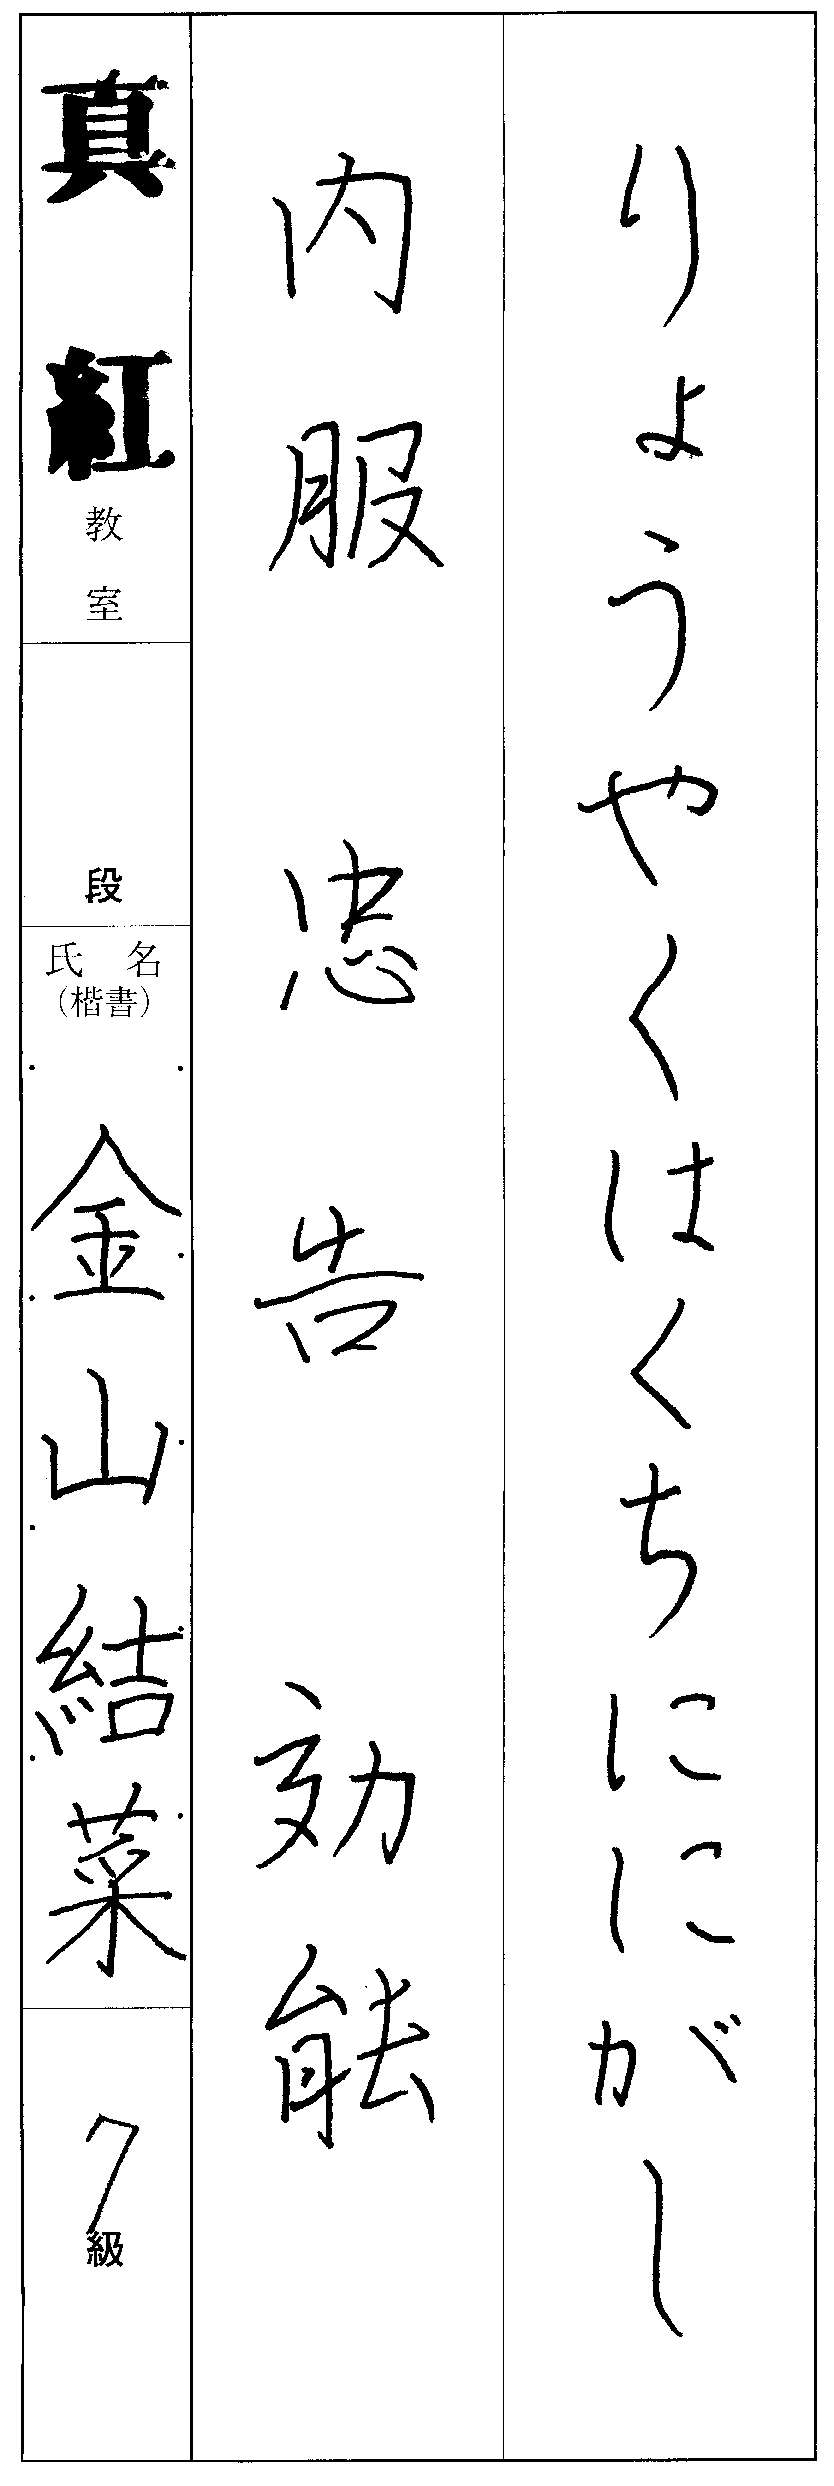 りょうやくはくちににがし
内服 忠告 効能
真紅教室
段
氏名
(楷書)
金山結菜
7級